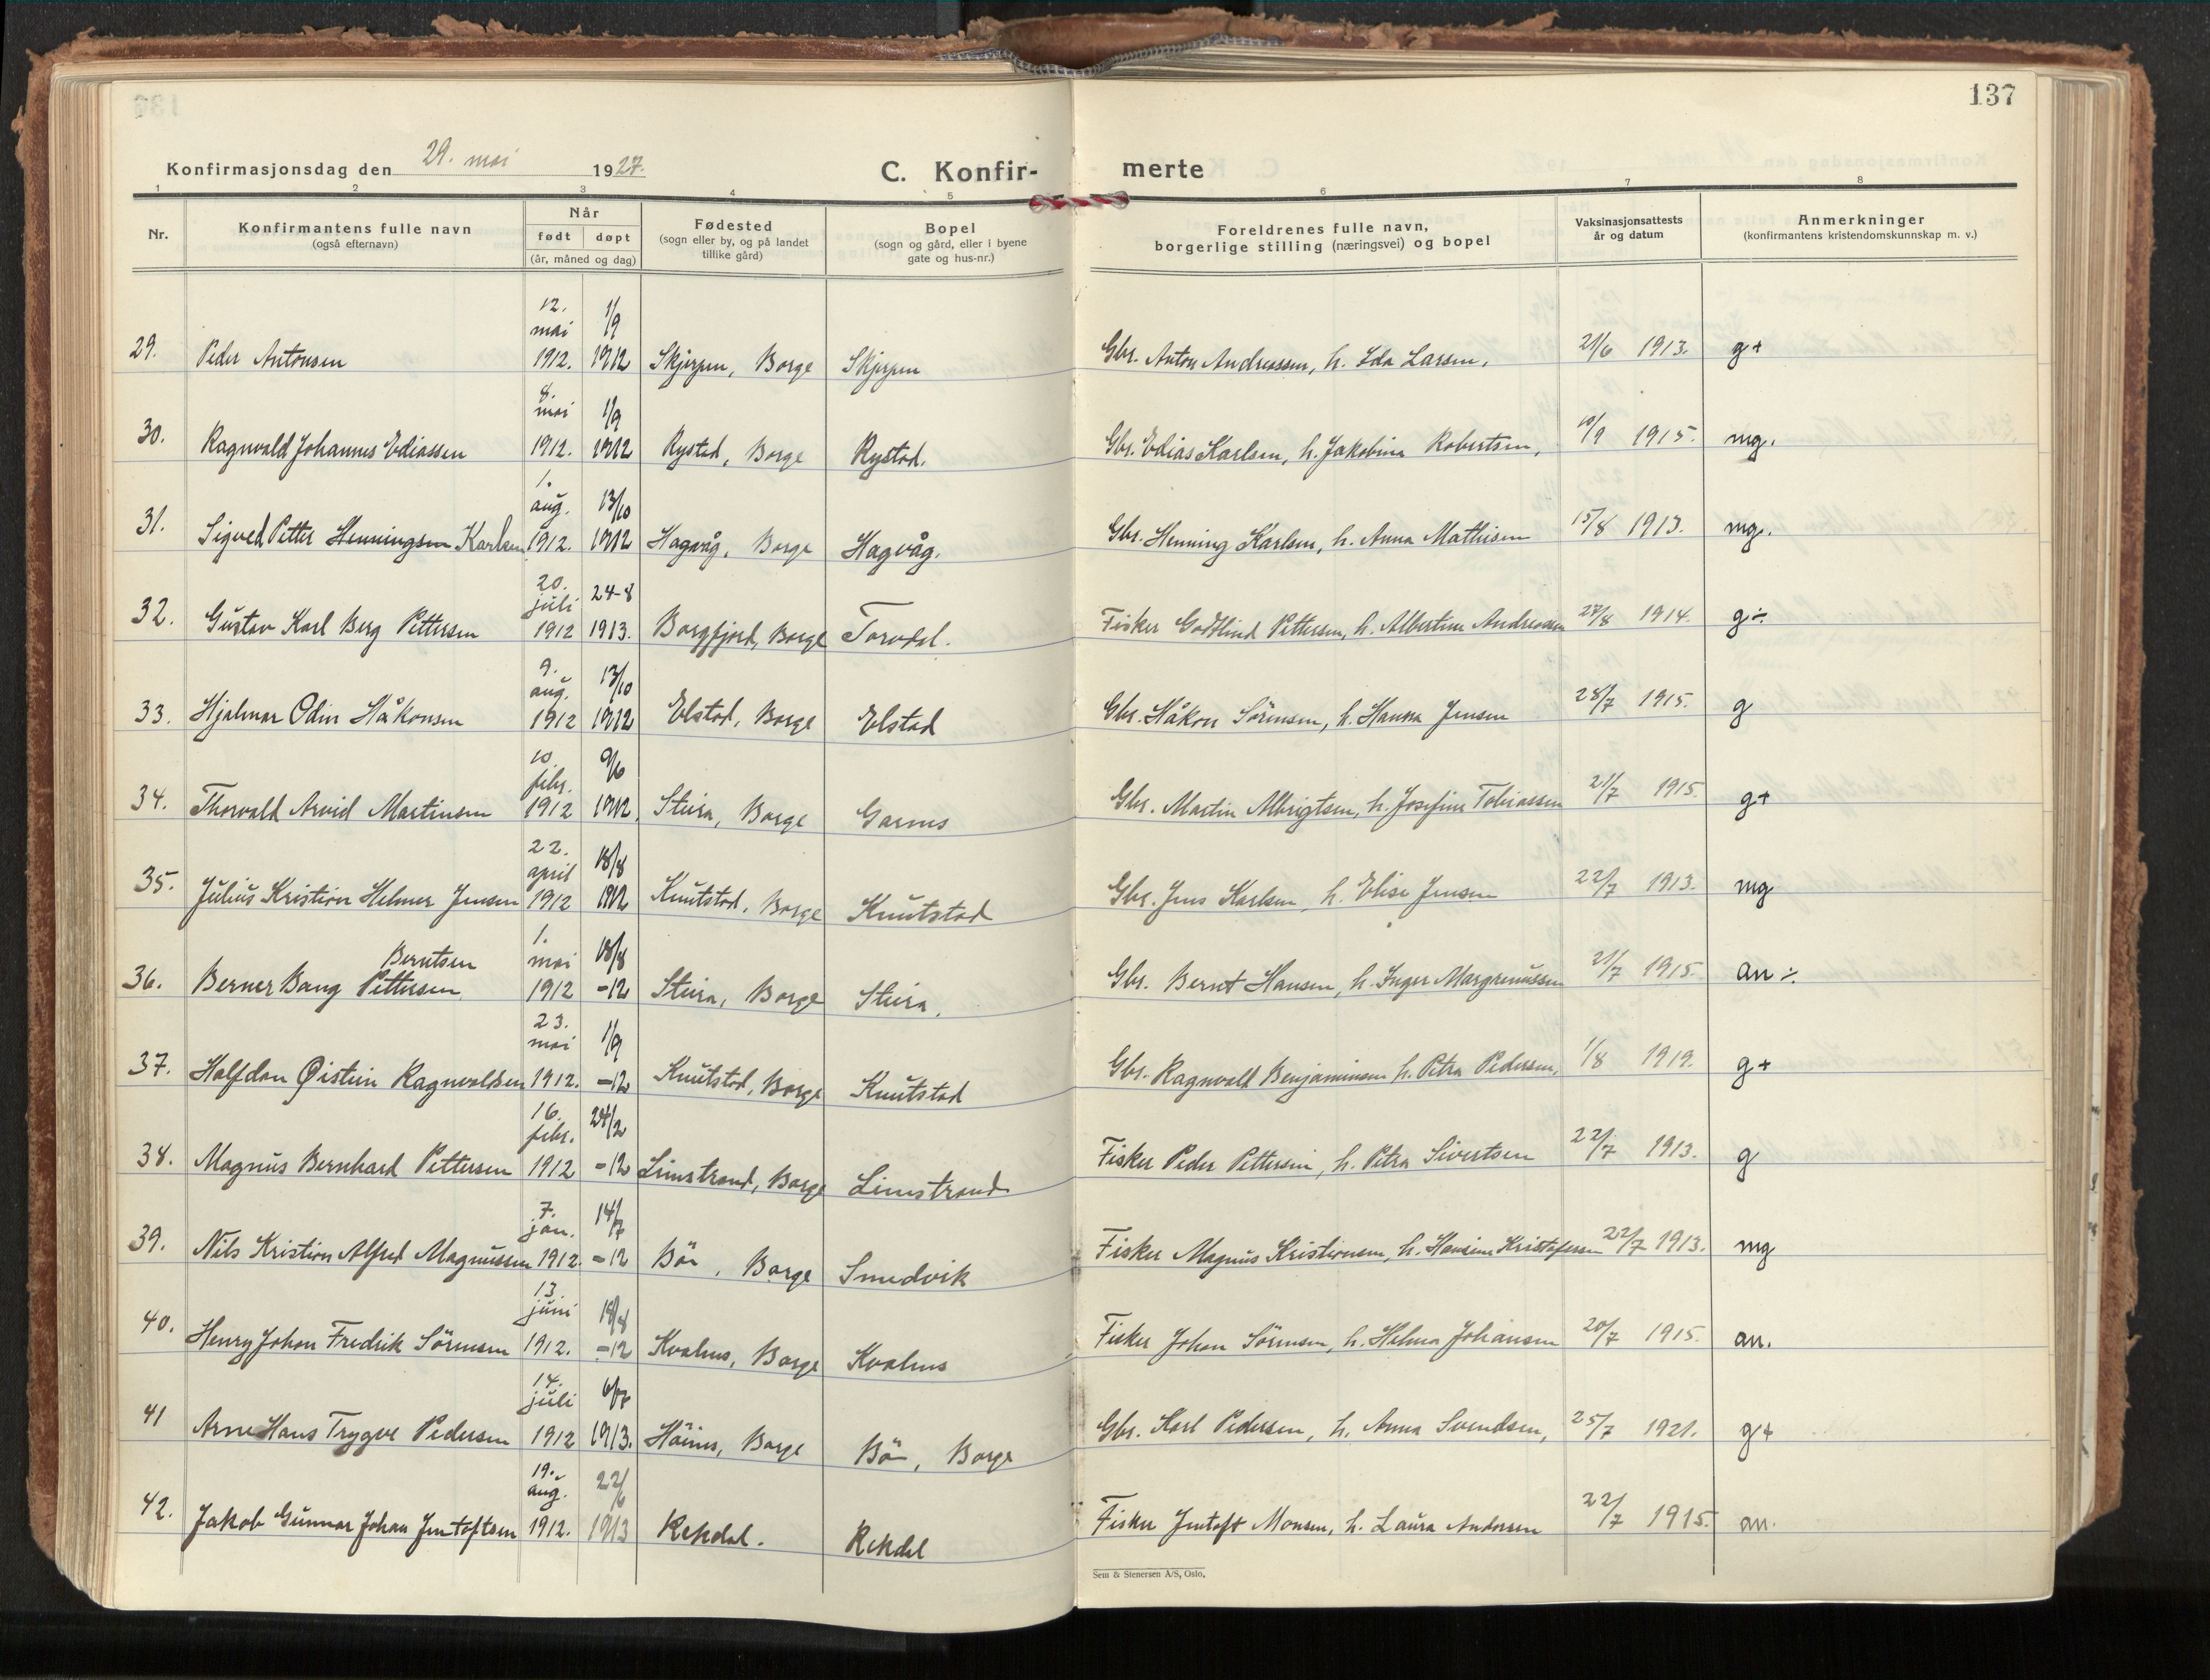 137
Konfirmasjonsdag den 29. mai 1927.
C. Konfir- merte
1 2 3 4 5 6 7 8
Nr.
Konfirmantens fulle navn
(også efternavn)
Når
født døpt
(år, måned og dag)
Fødested
(sogn eller by, og på landet
tillike gård)
Bopel
(sogn og gård, eller i byene
gate og hus-nr.)
Foreldrenes fulle navn,
borgerlige stilling (næringsvei) og bopel
Vaksinasjonsattests
år og datum
Anmerkninger
(konfirmantens kristendomskunnskap m. v.)
12. mai 1/9
29. Peder Antonsen 1912. 1912 Skjerpen, Borge Skjerpen Gbr. Anton Andreassen, h. Ida Larsen, 21/6 1913. g+
8. mai 1/9
30. Ragnvald Johannes Ediassen 1912. 1912 Rystad, Borge Rystad. Gbr. Edias Karlsen, h. Jakobina Robertsen, 10/9 1915. mg.
1. aug. 13/10
31. Sigved Petter Henningsen Karlsen 1912. 1912 Hagvåg, Borge Hagvåg. Gbr. Henning Karlsen, h. Anna Mathisen 15/8 1913. mg.
20. juli 24-8
32. Gustav Karl Berg Pettersen 1912 1913. Borgfjord, Borge Torvdal. Fisker Godtlind Pettersen, h. Albertine Andreasen 27/8 1914. g÷
9. aug. 13/10
33. Hjalmar Odin Håkonsen 1912 1912 Elstad, Borge Elstad Gbr. Håkon Sörensen, h. Hanna Jensen 28/7 1915. g
10. febr. 9/6
34. Thorvald Arvid Martinsen 1912 1912. Steira, Borge Garnes Gbr. Martin Albrigtsen, h. Josefine Tobiassen 21/7 1915. g+
22. april 18/8
35. Julius Kristian Helmer Jensen 1912 1912 Knutstad, Borge Knutstad Gbr. Jens Karlsen, h. Elise Jensen 22/7 1913. mg
Berntsen 1. mai 18/8
36. Berner Bang Pettersen 1912 -12 Steira, Borge Steira. Gbr. Bernt Hansen, h. Inger Margremussen 21/7 1915. an÷
23. mai 1/9
37. Halfdan Øistein Ragnvaldsen 1912. -12 Knutstad, Borge Knutstad Gbr. Ragnvald Benjaminsen h. Petra Pedersen, 1/8 1919. g+
16. febr. 24/2
38. Magnus Bernhard Pettersen 1912 -12 Limstrand, Borge Limstrand Fisker Peder Pettersen, h. Petra Sivertsen 22/7 1913. g
7. jan. 14/7
39. Nils Kristian Alfred Magnussen 1912. -12 Bö, Borge Smedvik Fisker Magnus Kristiansen, h. Hansine Kristofersen 22/7 1913. mg
13. juni 18/8
40. Henry Johan Fredrik Sörensen 1912. -12 Kvalnes, Borge Kvalnes Fisker Johan Sörensen, h. Helma Johansen 20/7 1915. an.
14. juli
41 Arne Hans Trygve Pedersen 1912 1913. Höines, Borge Bö, Borge Gbr. Karl Pedersen, h. Anna Svendsen, 25/7 1921. g+
19. aug. 22/6
42. Jakob Gunnar Johan Jentoftsen 1912. 1913 Rekdal. Rekdal Fisker Jentoft Monsen, h. Laura Andersen 22/7 1915. an.
Sem & Stenersen A/S, Oslo.